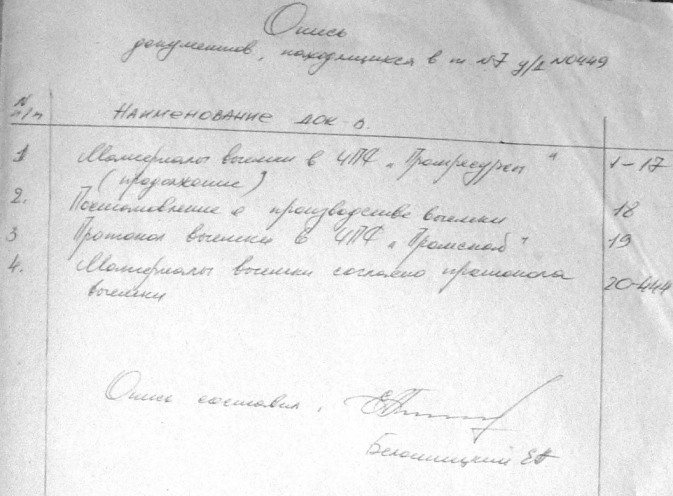 Опись
документов, находящихся в т. №7 у/д №0449
N п/п
НАИМЕНОВАНИЕ ДОК-В.
1 Материалы выемки в ЧПФ „Промресурсы" 1-17
(продолжение)
2. Постановление о производстве выемки 18
3 Протокол выемки в ЧПФ „Промснаб" 19
4. Материалы выемки согласно протокола 20-444
выемки
Опись составил:
Белошицкий